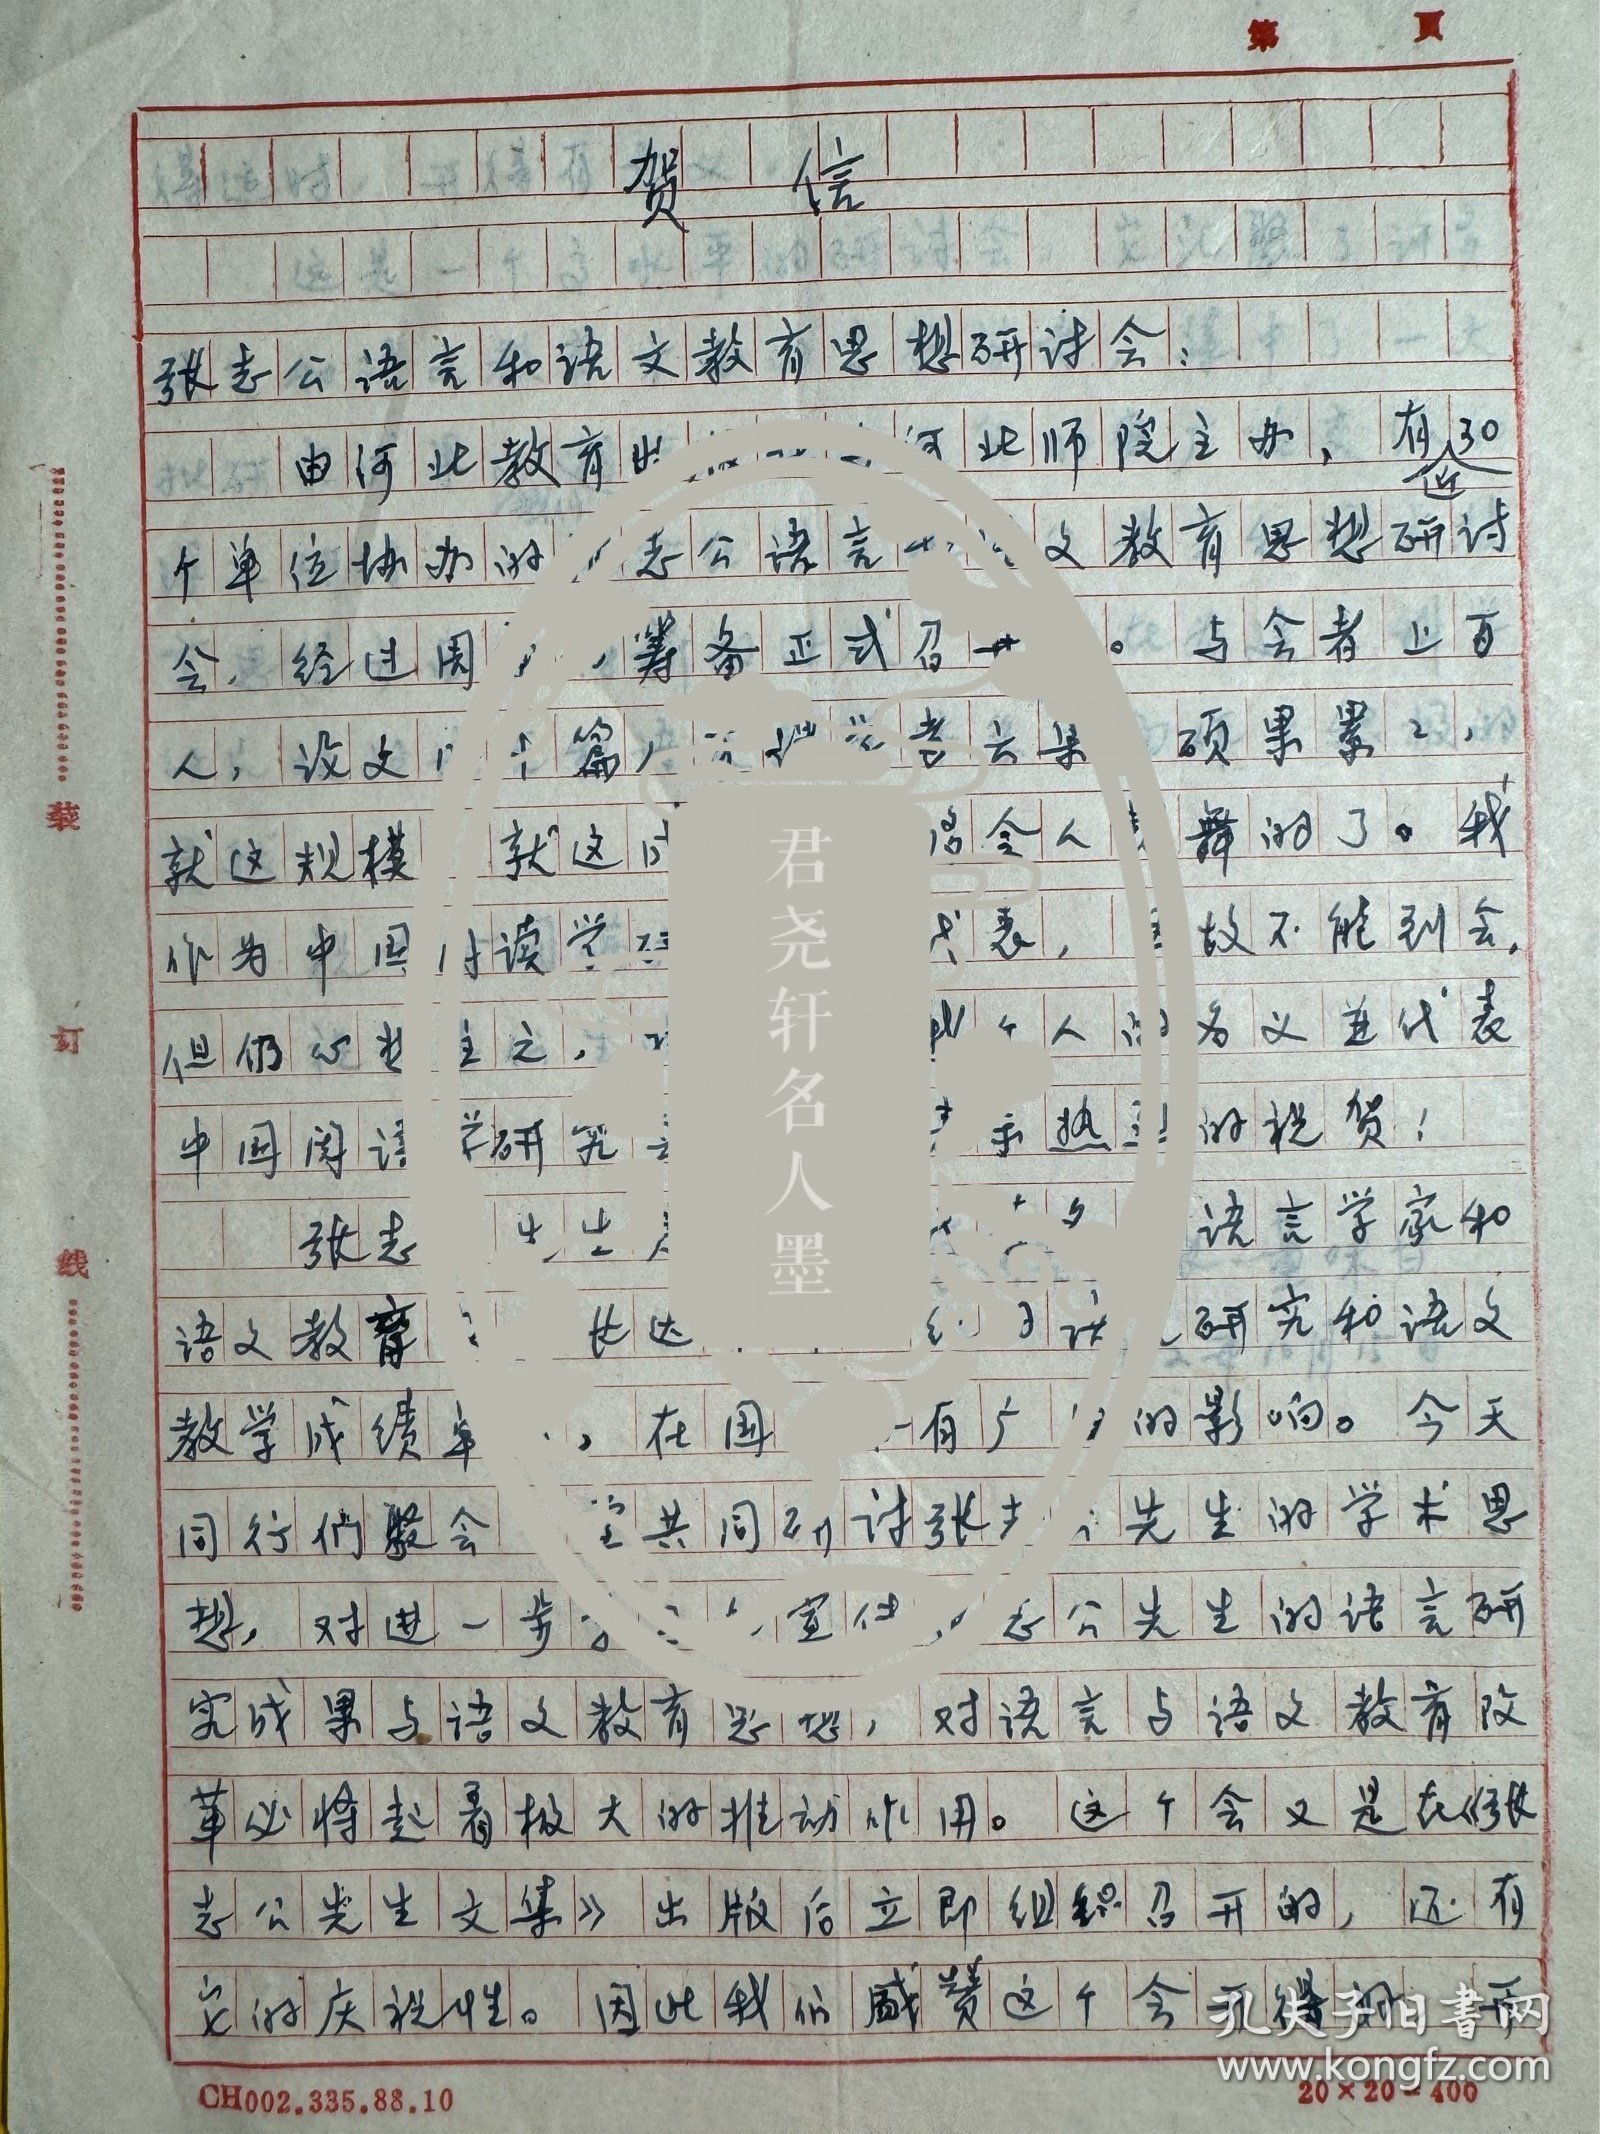 第 页
贺 信
张志公语言和语文教育思想研讨会：
由河北教育出 河北师院主办，有近30
个单位协办的 志公语言 文教育思想研讨
会，经过周 筹备正式召 。与会者上百
人，论文 篇， 学者云集 硕果累々，
就这规模 就这 令人 舞的了。我
作为中国阅读学研 代表， 故不能到会，
但仍心 往之， 我个人的名义并代表
中国阅读学研究 示热烈的祝贺！
张志 先生 语言学家和
语文教育 长达 研究和语文
教学成绩卓 ，在国 有广 的影响。今天
同行们聚会一堂共同研讨张志公先生的学术思
想，对进一步 宣传 志公先生的语言研
究成果与语文教育思想，对语言与语文教育改
革必将起着极大的推动作用。这个会又是在《张
志公先生文集》出版后立即组织召开的，还有
它的庆祝性。因此我们盛赞这个会开得
装
订
线
君尧轩名人墨
孔夫子旧书网
www.kongfz.com
CH002.335.88.10
20×20=400